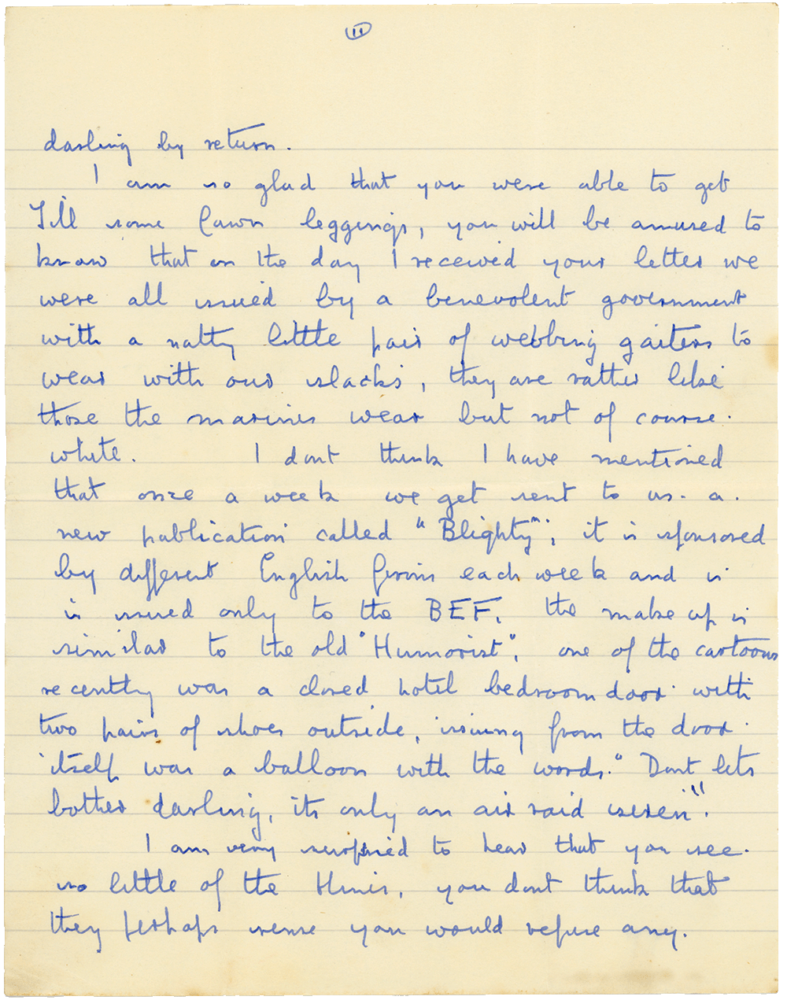 11
darling by return.
I am so glad that you were able to get
Jill some fawn leggings, you will be amused to
know that on the day I received your letter we
were all issued by a benevolent government
with a natty little pair of webbing gaiters to
wear with our slacks, they are rather like
those the marines wear but not of course.
white. I dont think I have mentioned
that once a week we get sent to us. a.
new publication called "Blighty"; it is sponsored
by different English firms each week and is
is issued only to the BEF. the make up is
similar to the old "Humorist", one of the cartoons
recently was a closed hotel bedroom door with
two pairs of shoes outside, issuing from the door.
itself was a balloon with the words." Dont lets
bother darling, its only an air raid siren".
I am very surprised to hear that you see.
so little of the you dont think that
they perhaps sense you would refuse any.